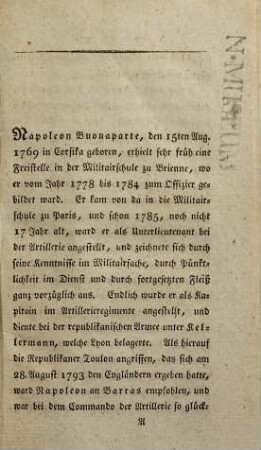 Napoleon Buonaparte, den 15ten Aug.
1769 in Corsika geboren, erhielt sehr früh eine
Freistelle in der Militairschule zu Brienne, wo
er vom Jahr 1778 bis 1784 zum Offizier ge-
bildet ward. Er kam von da in die Militair-
schule zu Paris, und schon 1785, noch nicht
17 Jahr alt, ward er als Unterlieutenant bei
der Artillerie angestellt, und zeichnete sich durch
seine Kenntnisse im Militairfache, durch Pünkt-
lichkeit im Dienst und durch fortgesetzten Fleiß
ganz vorzüglich aus. Endlich wurde er als Ka-
pitain im Artillerieregimente angestellt, und
diente bei der republikanischen Armee unter Kel-
lermann, welche Lyon belagerte. Als hierauf
die Republikaner Toulon angriffen, das sich am
28. August 1793 den Engländern ergeben hatte,
ward Napoleon an Barras empfohlen, und
war bei dem Commando der Artillerie so glück-
A